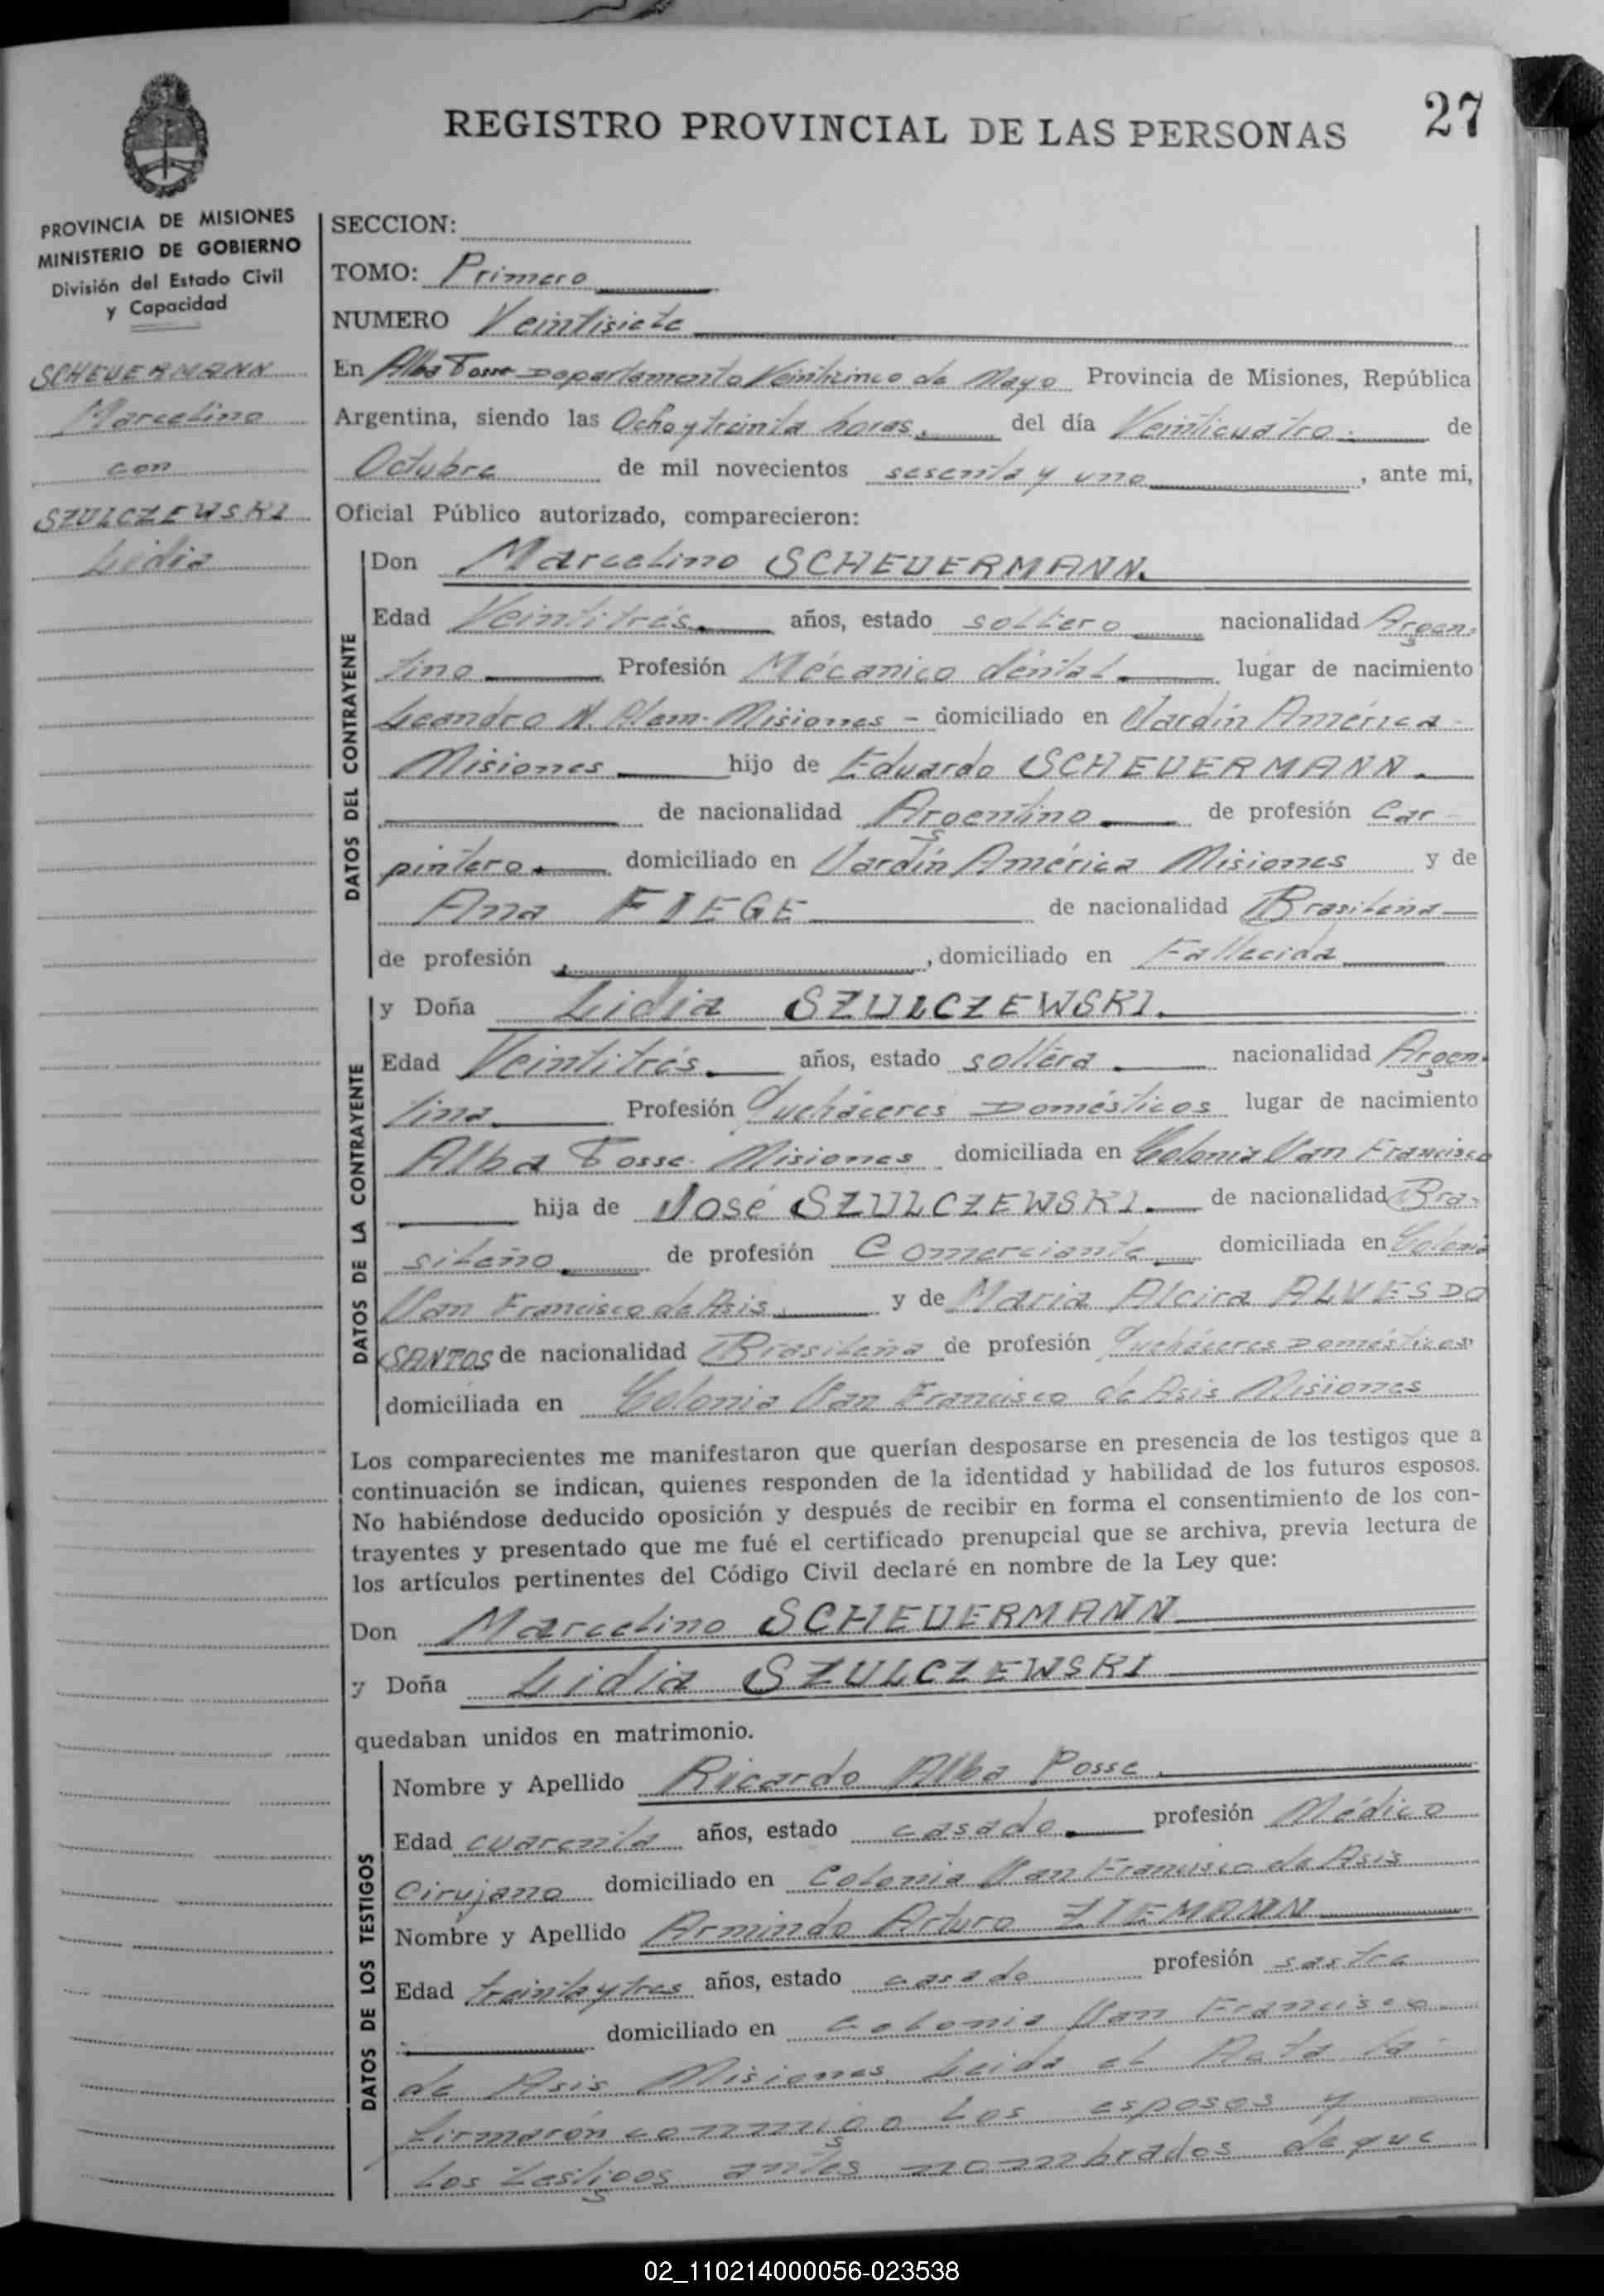 REGISTRO PROVINCIAL DE LAS PERSONAS
27
PROVINCIA DE MISIONES
MINISTERIO DE GOBIERNO
División del Estado Civil
y Capacidad
SCHEUERMANN
Marcelino
con
SZULCZEWSKI
Lidia
SECCION:
TOMO: Primero
NUMERO Veintisiete
En Alba Posse Departamento Veinticinco de Mayo Provincia de Misiones, República
Argentina, siendo las Ocho y treinta horas. del día Veinticuatro de
Octubre de mil novecientos sesenta y uno, ante mi,
Oficial Público autorizado, comparecieron:
DATOS DEL CONTRAYENTE
Don Marcelino SCHEUERMANN.
Edad Veintitrés. años, estado soltero nacionalidad Argen-
tino Profesión Mécanico dental. lugar de nacimiento
Leandro N. Alem-Misiones - domiciliado en Jardín América-
Misiones hijo de Eduardo SCHEUERMANN.
de nacionalidad Argentino de profesión Car-
pintero. domiciliado en Jardín América Misiones y de
Ana FIEGE de nacionalidad Brasileña
de profesión , domiciliado en Fallecida
DATOS DE LA CONTRAYENTE
y Doña Lidia SZULCZEWSKI.
Edad Veintitrés. años, estado soltera. nacionalidad Argen-
tina Profesión Quehaceres Domésticos lugar de nacimiento
Alba Posse-Misiones domiciliada en Colonia San Francisco
hija de José SZULCZEWSKI. de nacionalidad Bra-
sileño. de profesión Comerciante domiciliada en Colonia
San Francisco de Asis. y de Maria Alcira ALVES DO
SANTOS de nacionalidad Brasileña de profesión Quehaceres Domésticos
domiciliada en Colonia San Francisco de Asis Misiones
Los comparecientes me manifestaron que querían desposarse en presencia de los testigos que a
continuación se indican, quienes responden de la identidad y habilidad de los futuros esposos.
No habiéndose deducido oposición y después de recibir en forma el consentimiento de los con-
trayentes y presentado que me fué el certificado prenupcial que se archiva, previa lectura de
los artículos pertinentes del Código Civil declaré en nombre de la Ley que:
Don Marcelino SCHEUERMANN
y Doña Lidia SZULCZEWSKI
quedaban unidos en matrimonio.
DATOS DE LOS TESTIGOS
Nombre y Apellido Ricardo Alba Posse.
Edad cuarenta años, estado casado. profesión Médico
Cirujano domiciliado en Colonia San Francisco de Asis
Nombre y Apellido Armindo Arturo ZIEMANN
Edad treinta y tres años, estado casado profesión sastre
domiciliado en Colonia San Francisco
de Asis Misiones Leida el Acta la-
firmarón conmigo los esposos y
los testigos antes nombrados de que
02_110214000056-023538